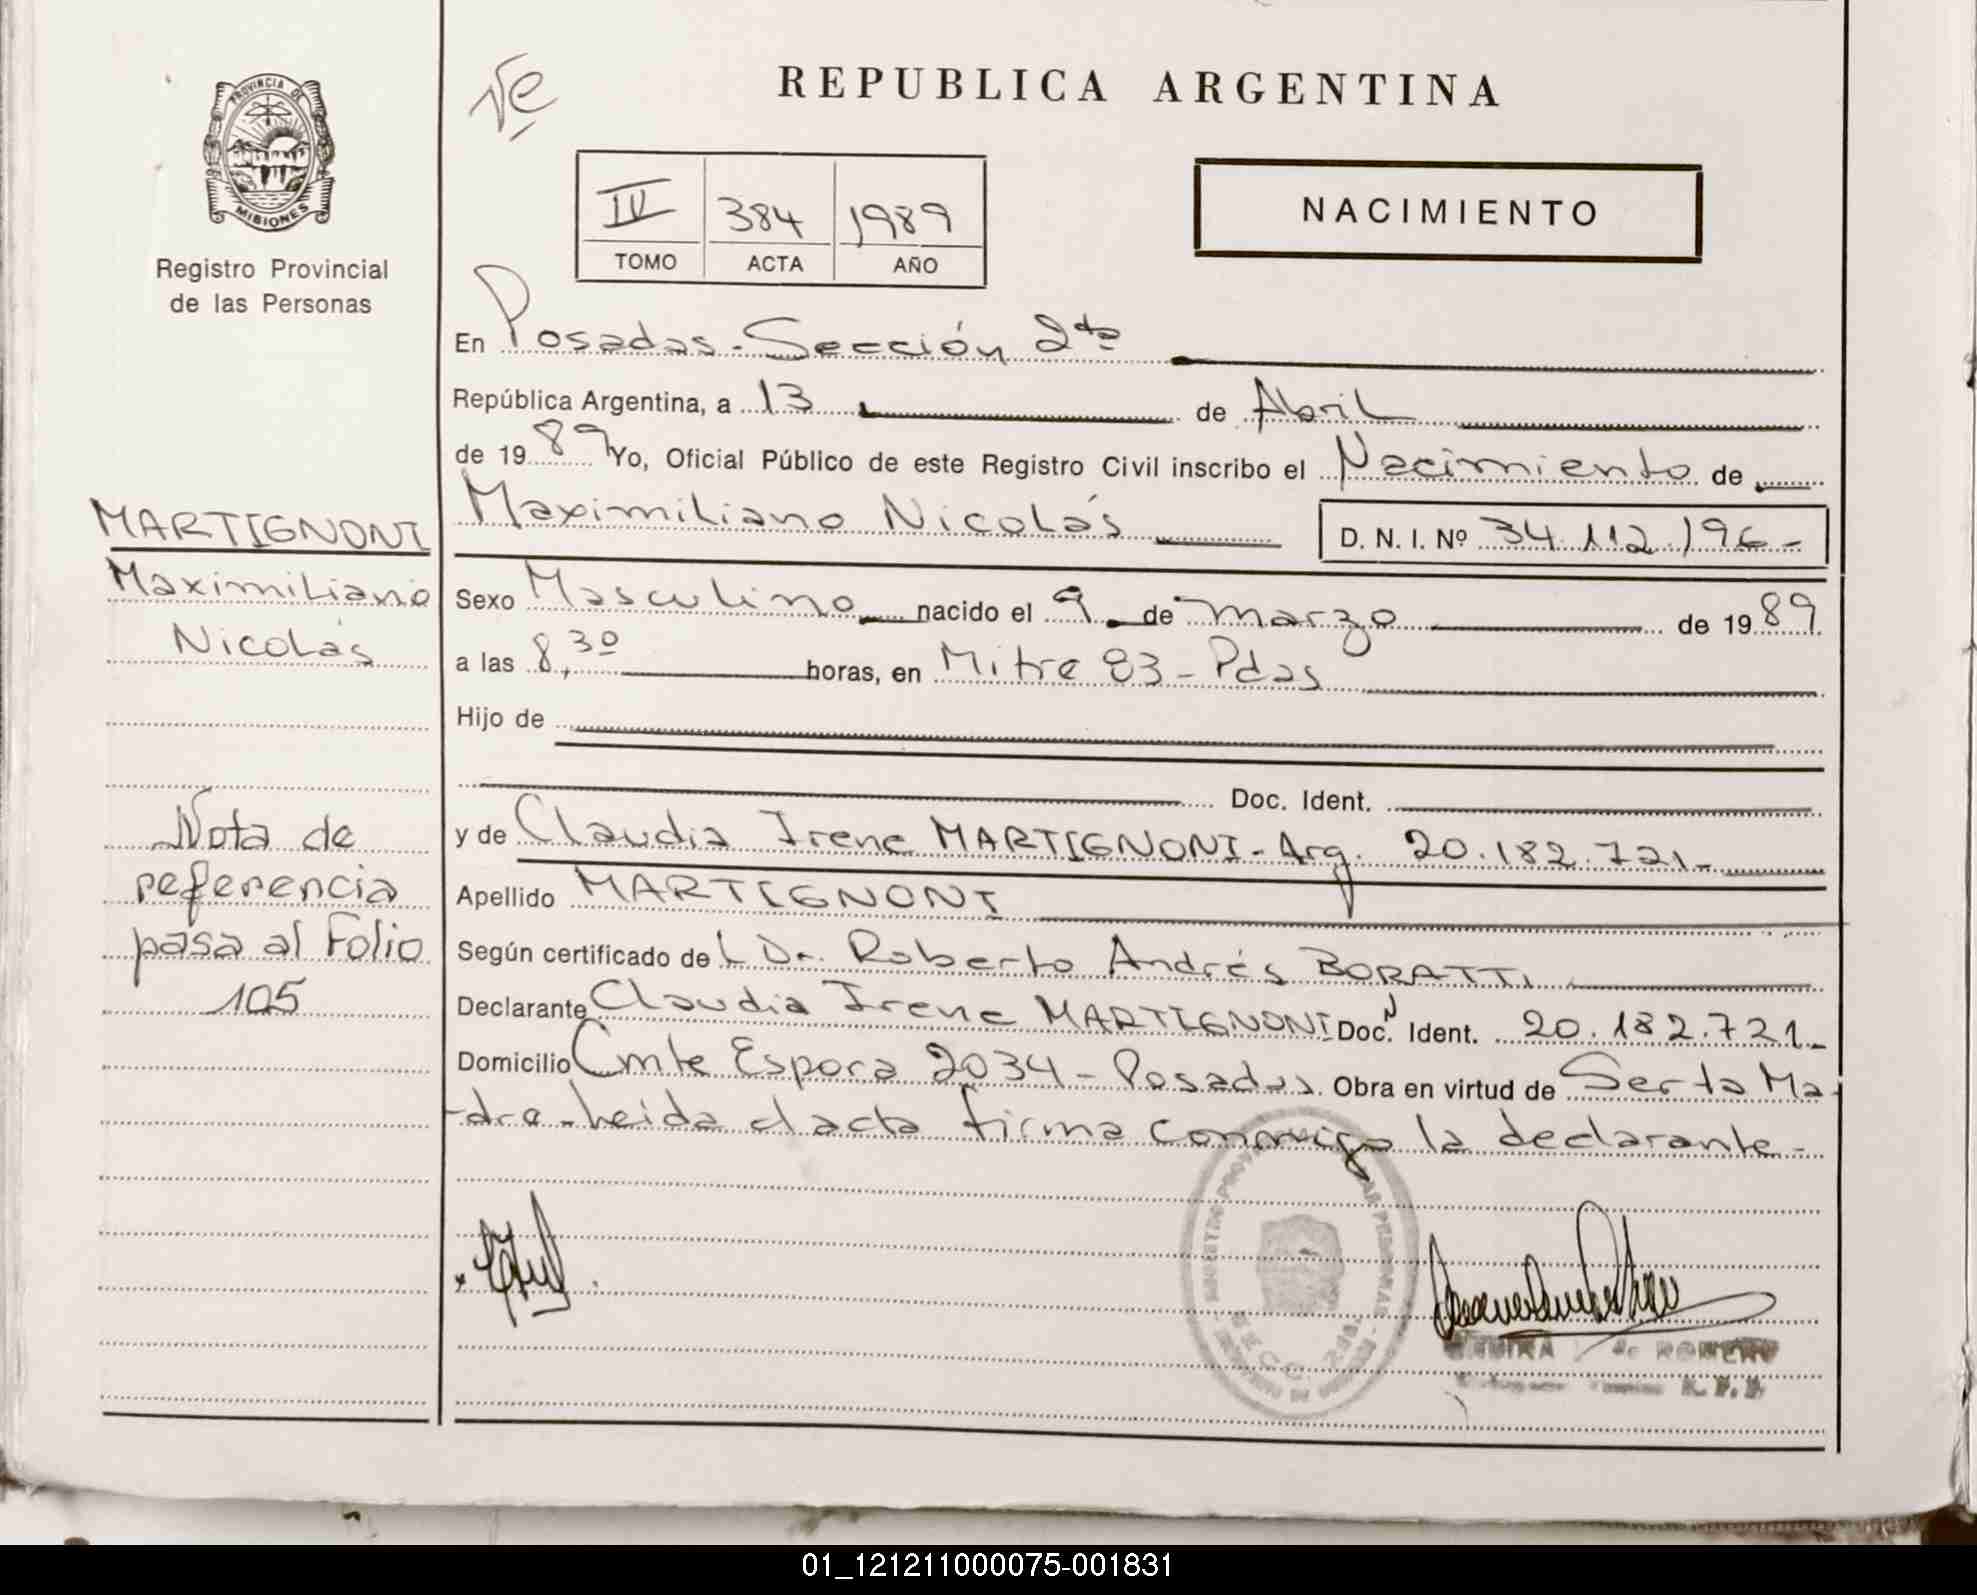 PROVINCIA DE
MISIONES
Registro Provincial
de las Personas
REPUBLICA ARGENTINA
IV 384 1989
TOMO ACTA AÑO
NACIMIENTO
En Posadas - Sección 2da
República Argentina, a 13 de Abril
de 1989 Yo, Oficial Público de este Registro Civil inscribo el Nacimiento de
Maximiliano Nicolás D. N. I. Nº 34.112.196-
Sexo Masculino nacido el 9 de marzo de 1989
a las 8,30 horas, en Mitre 83 - Pdas
Hijo de
Doc. Ident.
y de Claudia Irene MARTIGNONI - Arg. 20.182.721-
Apellido MARTIGNONI
Según certificado del Dr. Roberto Andrés BORATTI
Declarante Claudia Irene MARTIGNONI Doc. Ident. 20.182.721-
Domicilio Cmte Espora 2034 - Posadas. Obra en virtud de Ser la Ma-
-dre - leida el acta firma conmigo la declarante-
MARTIGNONI
Maximiliano
Nicolás
Nota de
referencia
pasa al Folio
105
de ROMERO
01_121211000075-001831